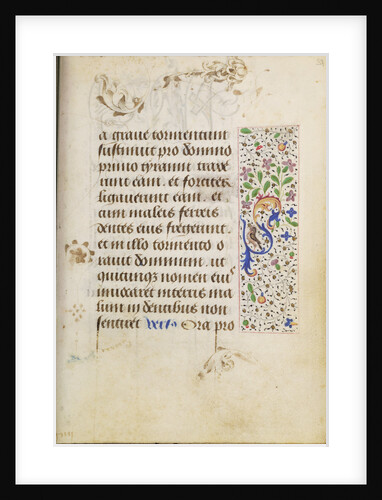 a graue tormentum
sustinuit pro domino
primo tyranni traxe
runt eam. et forciter
ligauerunt eam. et
cum malleis ferreis
dentes eius fregerunt.
et in illo tormento o
rauit dominum. ut
quicunqz nomen eius
inuocaret in terris ma
lum in dentibus non
sentiret vers9 Ora pro